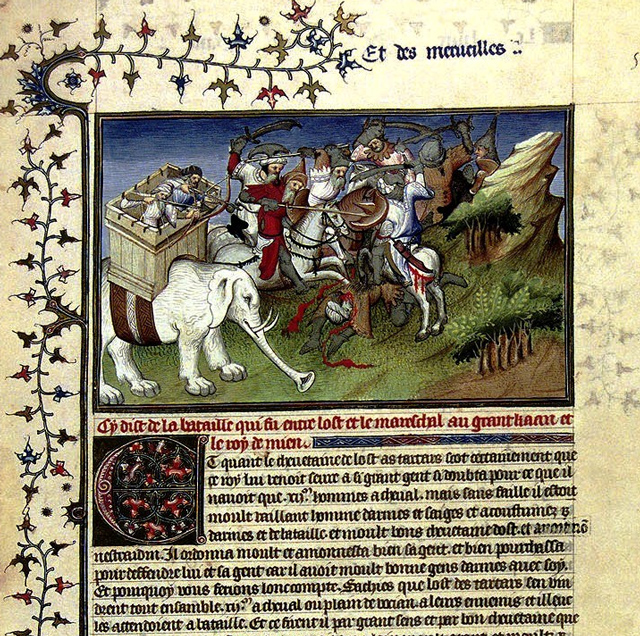 Et des merueilles
Cy dist de la bataille qui fu entre lost et le mareschal au grant kaan et
le roy de mien.
Et quant le cheuetaine de lost as tartars scot certainement que
ce roy lui venoit seure a si grant gent si doubta pour ce que il
nauoit que .xij. hommes a cheual. mais sans faille il estoit
moult vaillant homme darmes et saiges et acoustumez
darmes et de bataille et moult bons cheuetaine dost. et auoit nō
nestraidin. Il ordonna moult et amonnesta bien sa gent. et bien pourchassa
pour deffendre lui et sa gent car il auoit moult bonne gens darmes auec soy.
Et pourquoy vous feroie lonc compte. Sachies que lost des tartars sen vin
drent tout ensamble .xij. a cheual ou plain de vocian. a leurs ennemis et illeuc
les attendoient a bataille. Et ce firent il par grant sens et par bon cheuetaine que